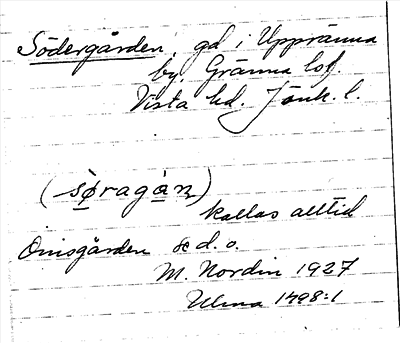 Södergården, gd i Uppränna
by. Gränna lsf.
Vista hd. Jönk. l.
(søragán)
kallas alltid
Onsgården se d. o.
M. Nordin 1927
Ulma 1498:1